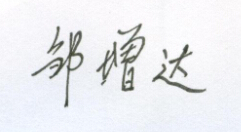 邹增达